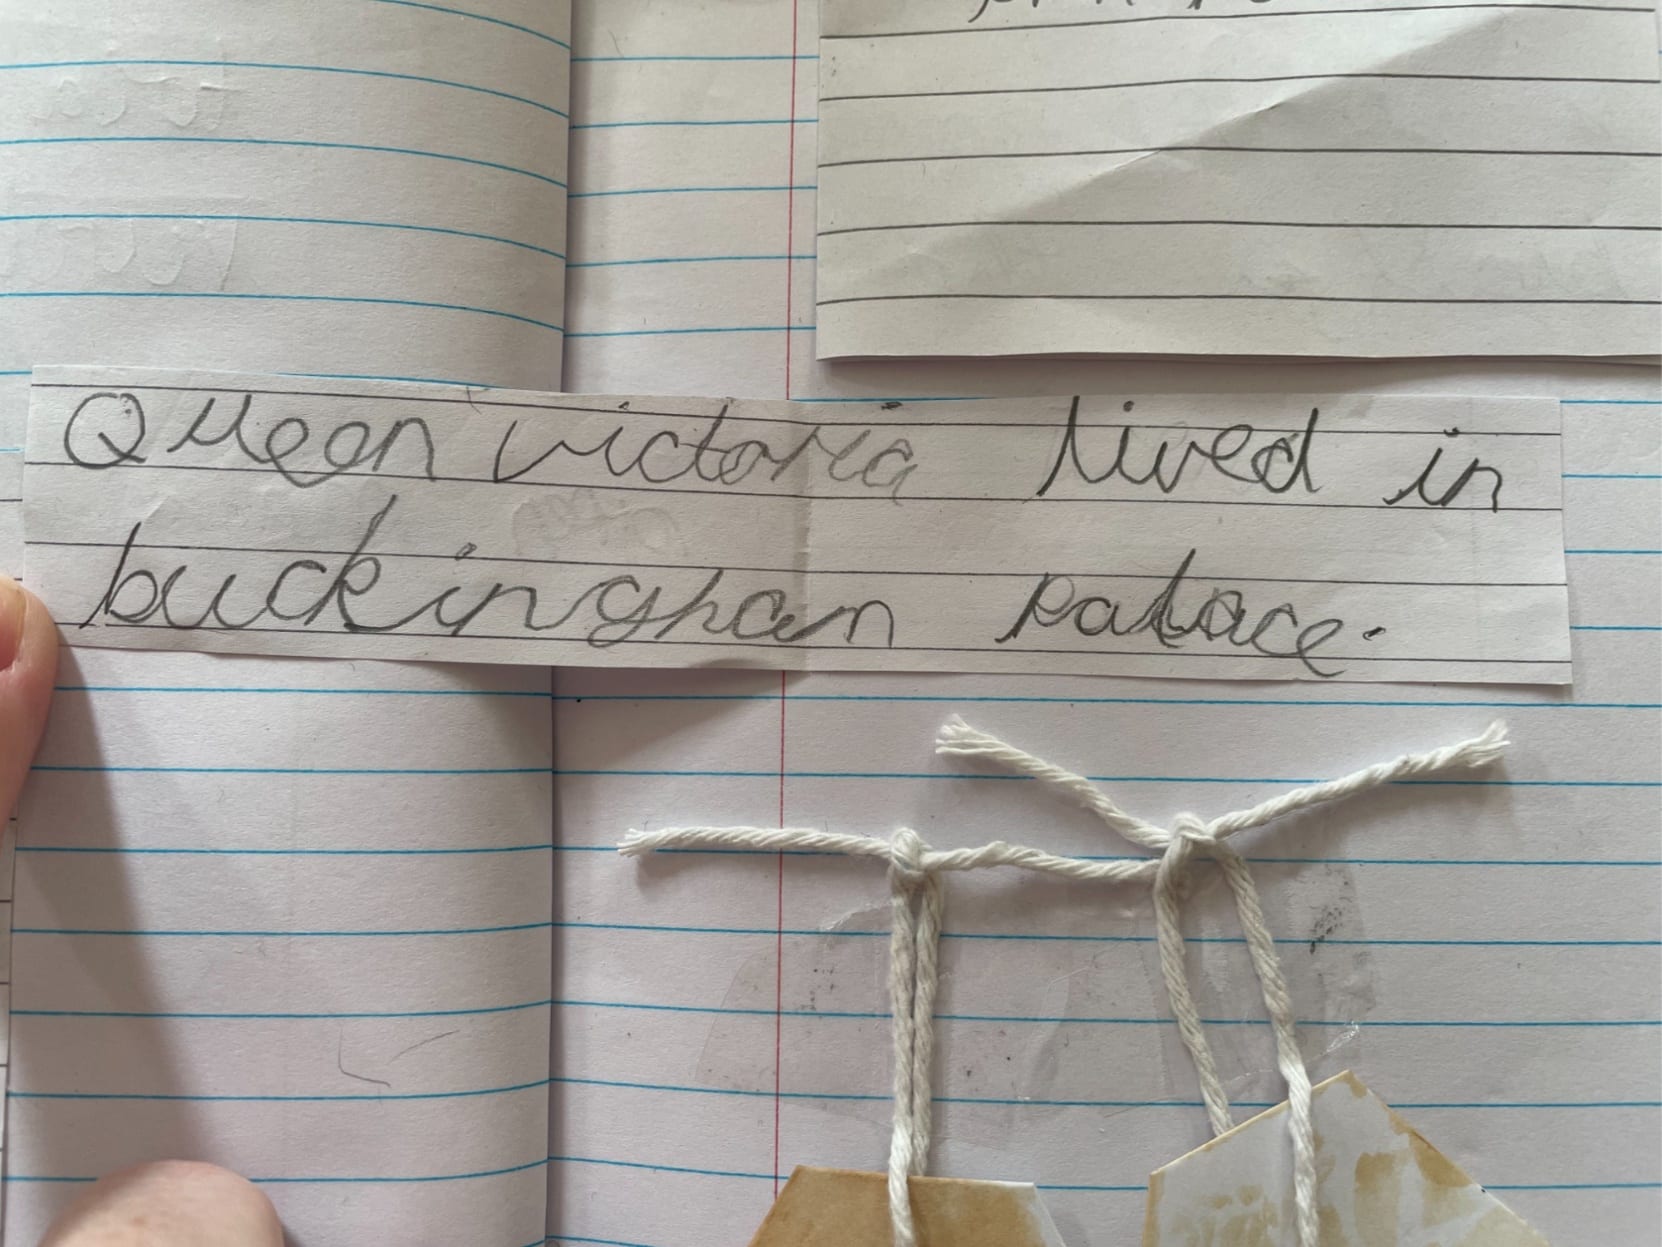 Queen victoria lived in
buckinghan palace.